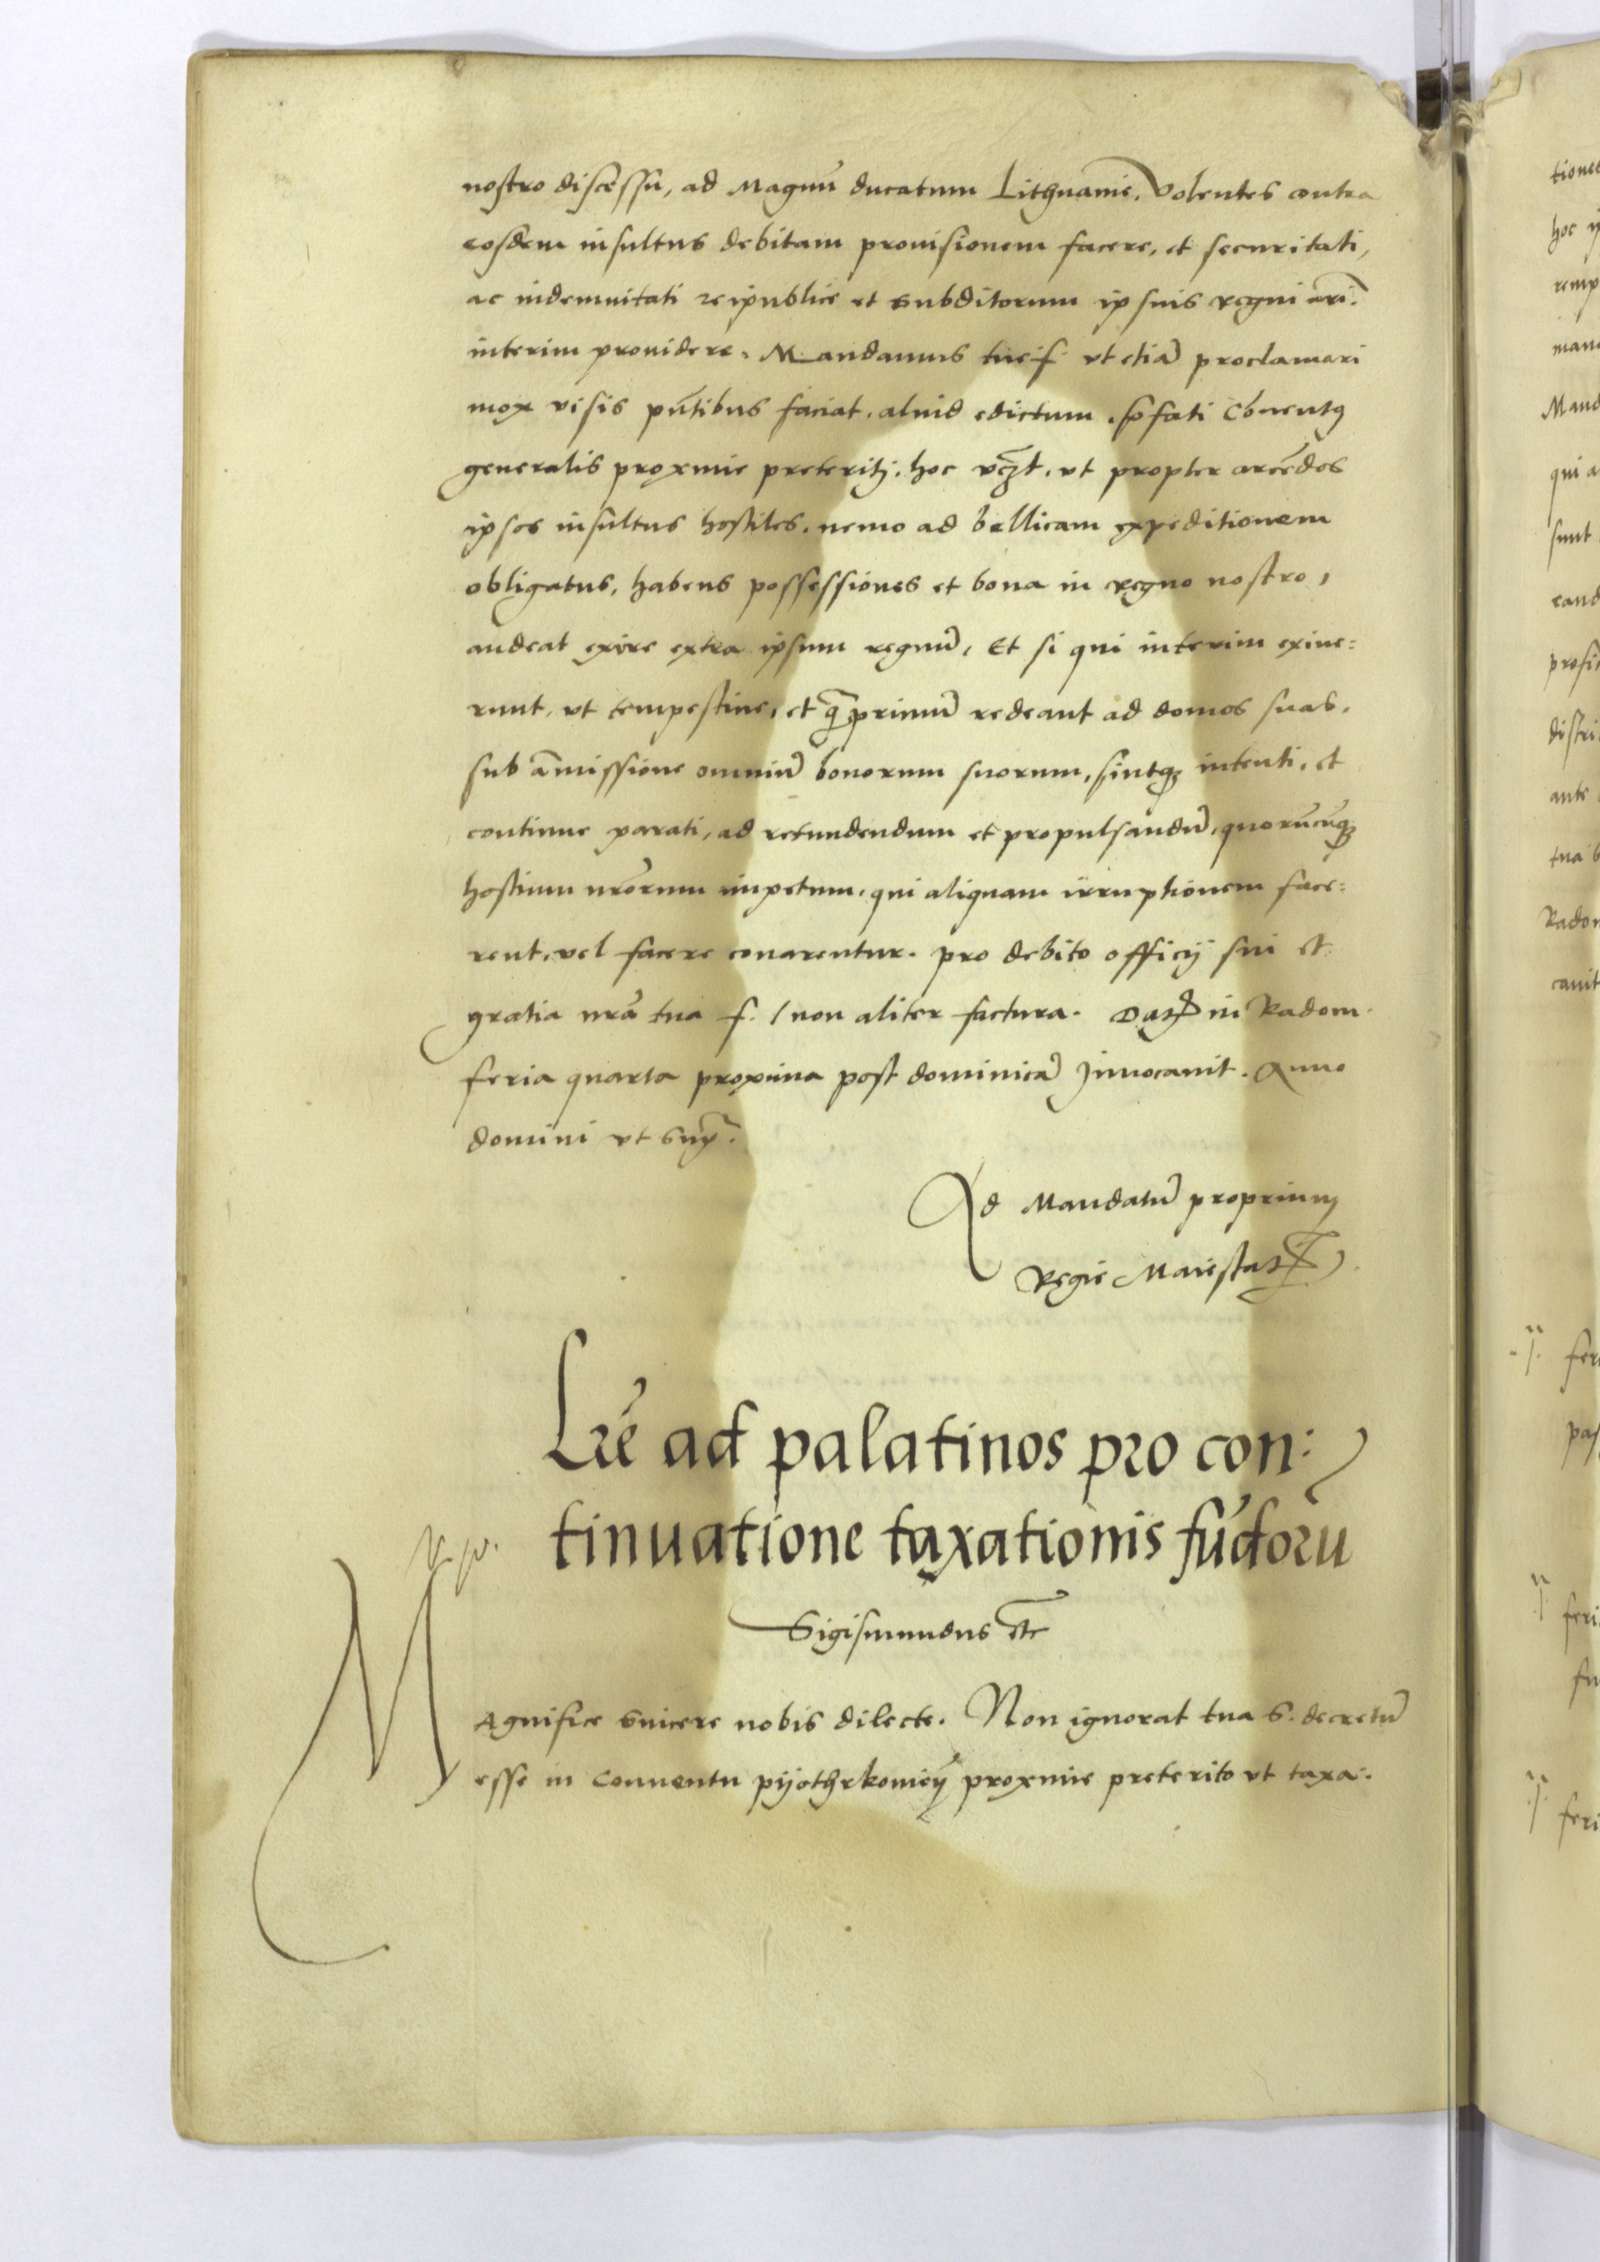 nostro discessu, ad Magnū ducatum Lithuanie. Volentes contra
eosdem insultus debitam prouisionem facere, et securitati,
ac indemnitati reipublice et subditorum ipsius regni nr̄i
interim prouidere. Mandamus tue f. vt etiā proclamari
mox visis pn̄tibus faciat, aliud edictum, p̄fati Cōuentus
generalis proxime preteritj, hoc vcz̄t, vt propter arcēdos
ipsos insultus hostiles, nemo ad bellicam expeditionem
obligatus, habens possessiones et bona in regno nostro,
audeat exire extra ipsum regnū, Et si qui interim exiue:
runt, vt tempestiue, et q̄primū redeant ad domos suas,
sub āmissione omniū bonorum suorum, sintqz intenti, et
continue parati, ad retundendum et propulsandū, quorūcūqz
hostium nr̄orum impetum, qui aliquam irruptionem face:
rent, vel facere conarentur. pro debito officij sui et
gratia nr̄a tua f. non aliter factura. Dat̄ in Radom
feria quarta proxima post dominicā Inuocauit. Anno
domini vt sup̄.
Ad Mandatū proprium
Regie Maiestat̄
Lr̄e ad palatinos pro con:
tinuatione taxationis fūdorū
Sigismundus etc̄
Magnifice sincere nobis dilecte. Non ignorat tua s. decretū
esse in Conuentu pyothrkowien̄ proxime preterito vt taxa:
tiones
hoc
remp
man
Mand
qui a
sunt
eand
distri
ante
tua
Radom
cauit
feri
feri